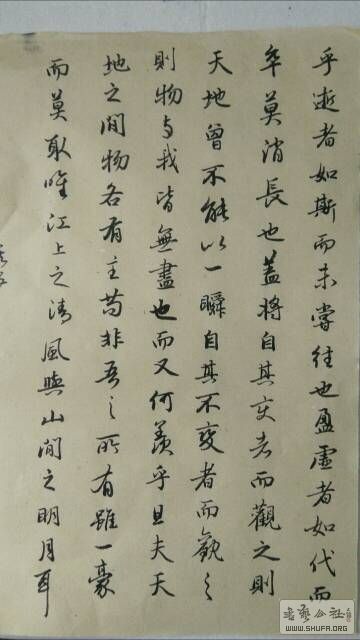 乎逝者如斯而未嘗往也盈虛者如代而
卒莫消長也蓋將自其变者而觀之則
天地曾不能以一瞬自其不變者而觀之
則物与我皆無盡也而又何羨乎且夫天
地之間物各有主苟非吾之所有雖一豪
而莫取唯江上之清風與山間之明月耳
书艺公社
WWW.SHUFA.ORG